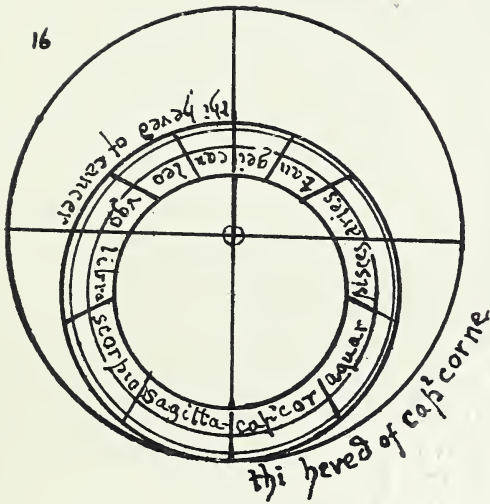 16
thi heved of cancer
aries
tau
gei
can
leo
vgo
libra
scorpio
sagitta-
cap²cor
aquar
pisces
thi heved of cap²corne